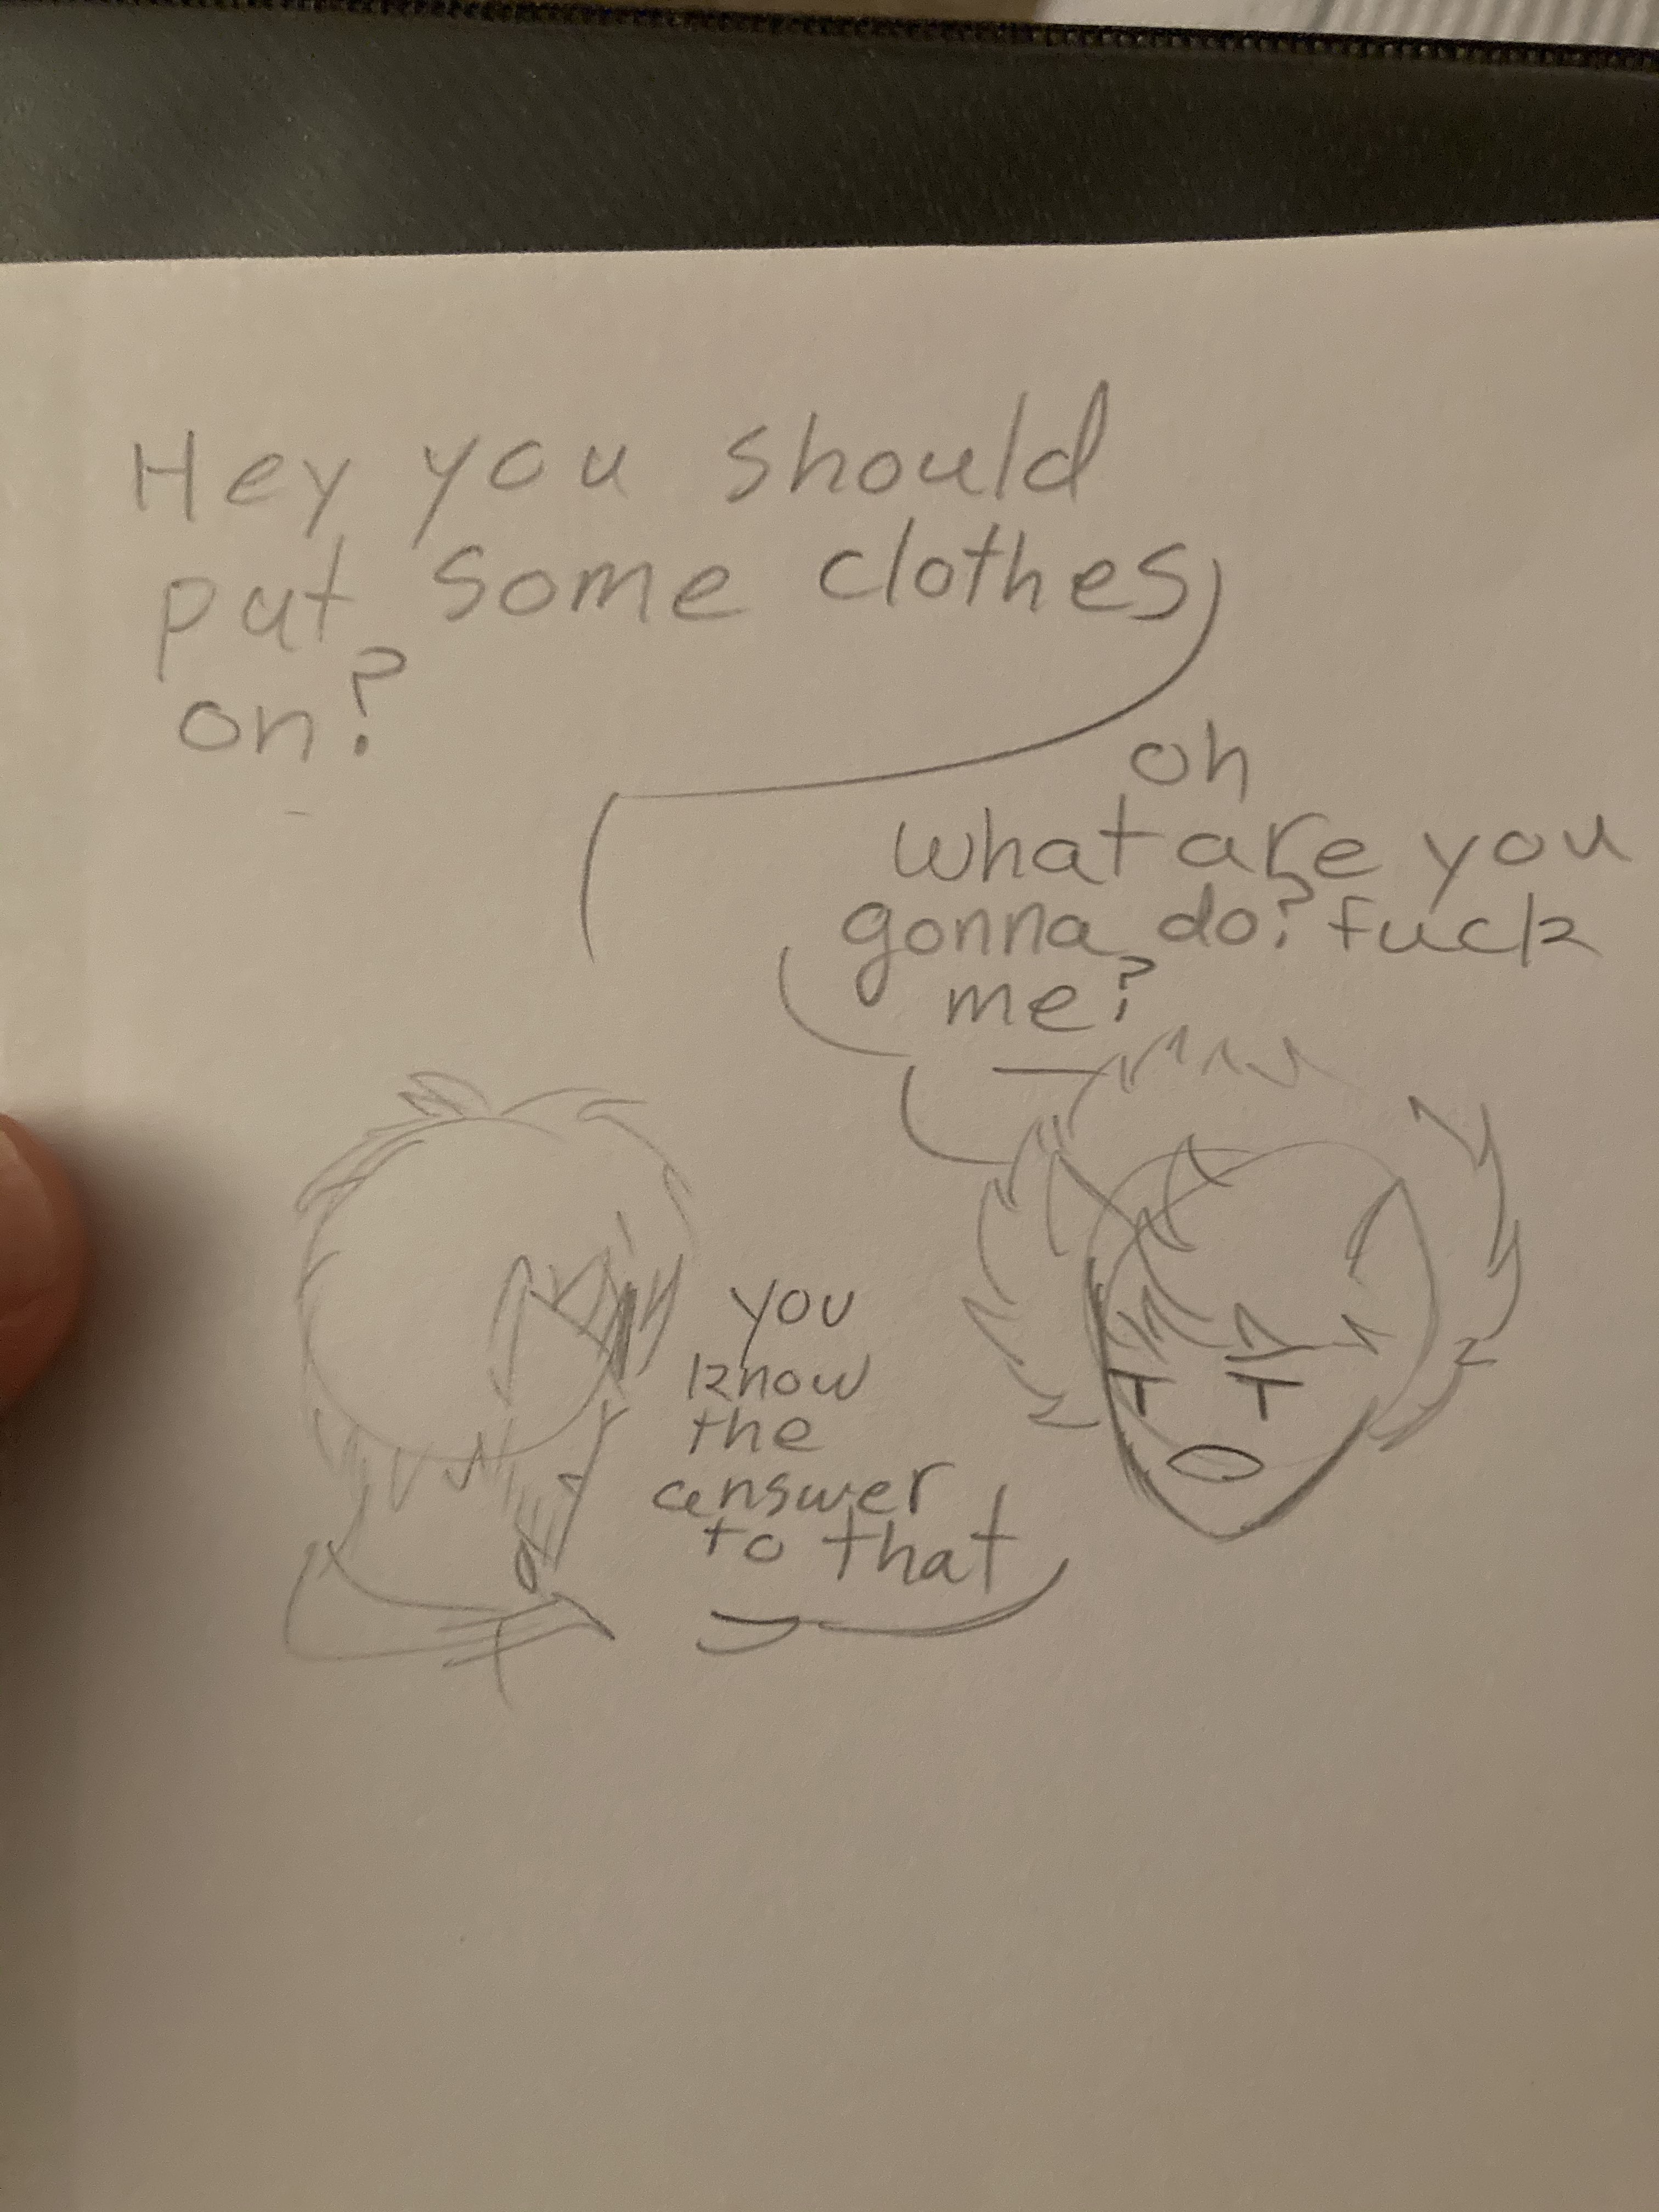 Hey you should
put some clothes
on?
oh
what are you
gonna do? fuck
me?
you
know
the
answer
to that